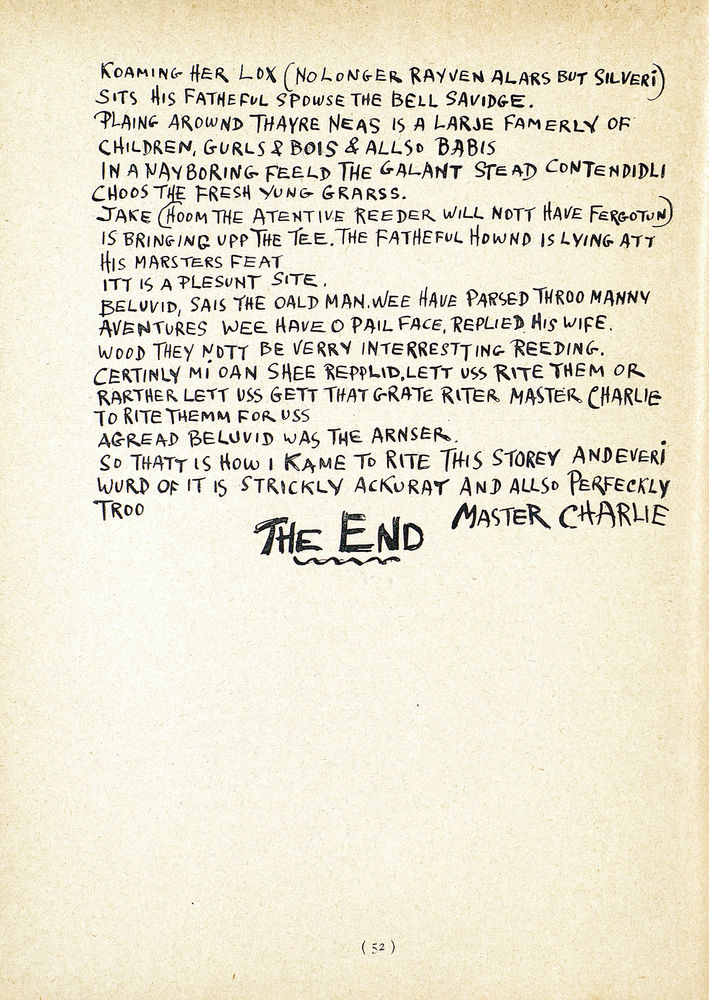 KOAMING HER LOX (NO LONGER RAYVEN ALARS BUT SILVERI)
SITS HIS FATHEFUL SPOWSE THE BELL SAVIDGE.
PLAING AROWND THAYRE NEAS IS A LARJE FAMERLY OF
CHILDREN, GURLS & BOIS & ALLSO BABIS
IN A NAYBORING FEELD THE GALANT STEAD CONTENDIDLI
CHOOS THE FRESH YUNG GRARSS.
JAKE (HOOM THE ATENTIVE REEDER WILL NOTT HAVE FERGOTUN)
IS BRINGING UPP THE TEE. THE FATHEFUL HOWND IS LYING ATT
HIS MARSTERS FEAT
ITT IS A PLESUNT SITE.
BELUVID, SAIS THE OALD MAN. WEE HAVE PARSED THROO MANNY
AVENTURES WEE HAVE O PAIL FACE, REPLIED HIS WIFE.
WOOD THEY NOTT BE VERRY INTERRESTTING REEDING.
CERTINLY MI OAN SHEE REPPLID, LETT USS RITE THEM OR
RARTHER LETT USS GETT THAT GRATE RITER MASTER CHARLIE
TO RITE THEMM FOR USS
AGREAD BELUVID WAS THE ARNSER.
SO THATT IS HOW I KAME TO RITE THIS STOREY AND EVERI
WURD OF IT IS STRICKLY ACKURAT AND ALLSO PERFECKLY
TROO
MASTER CHARLIE
THE END
(52)